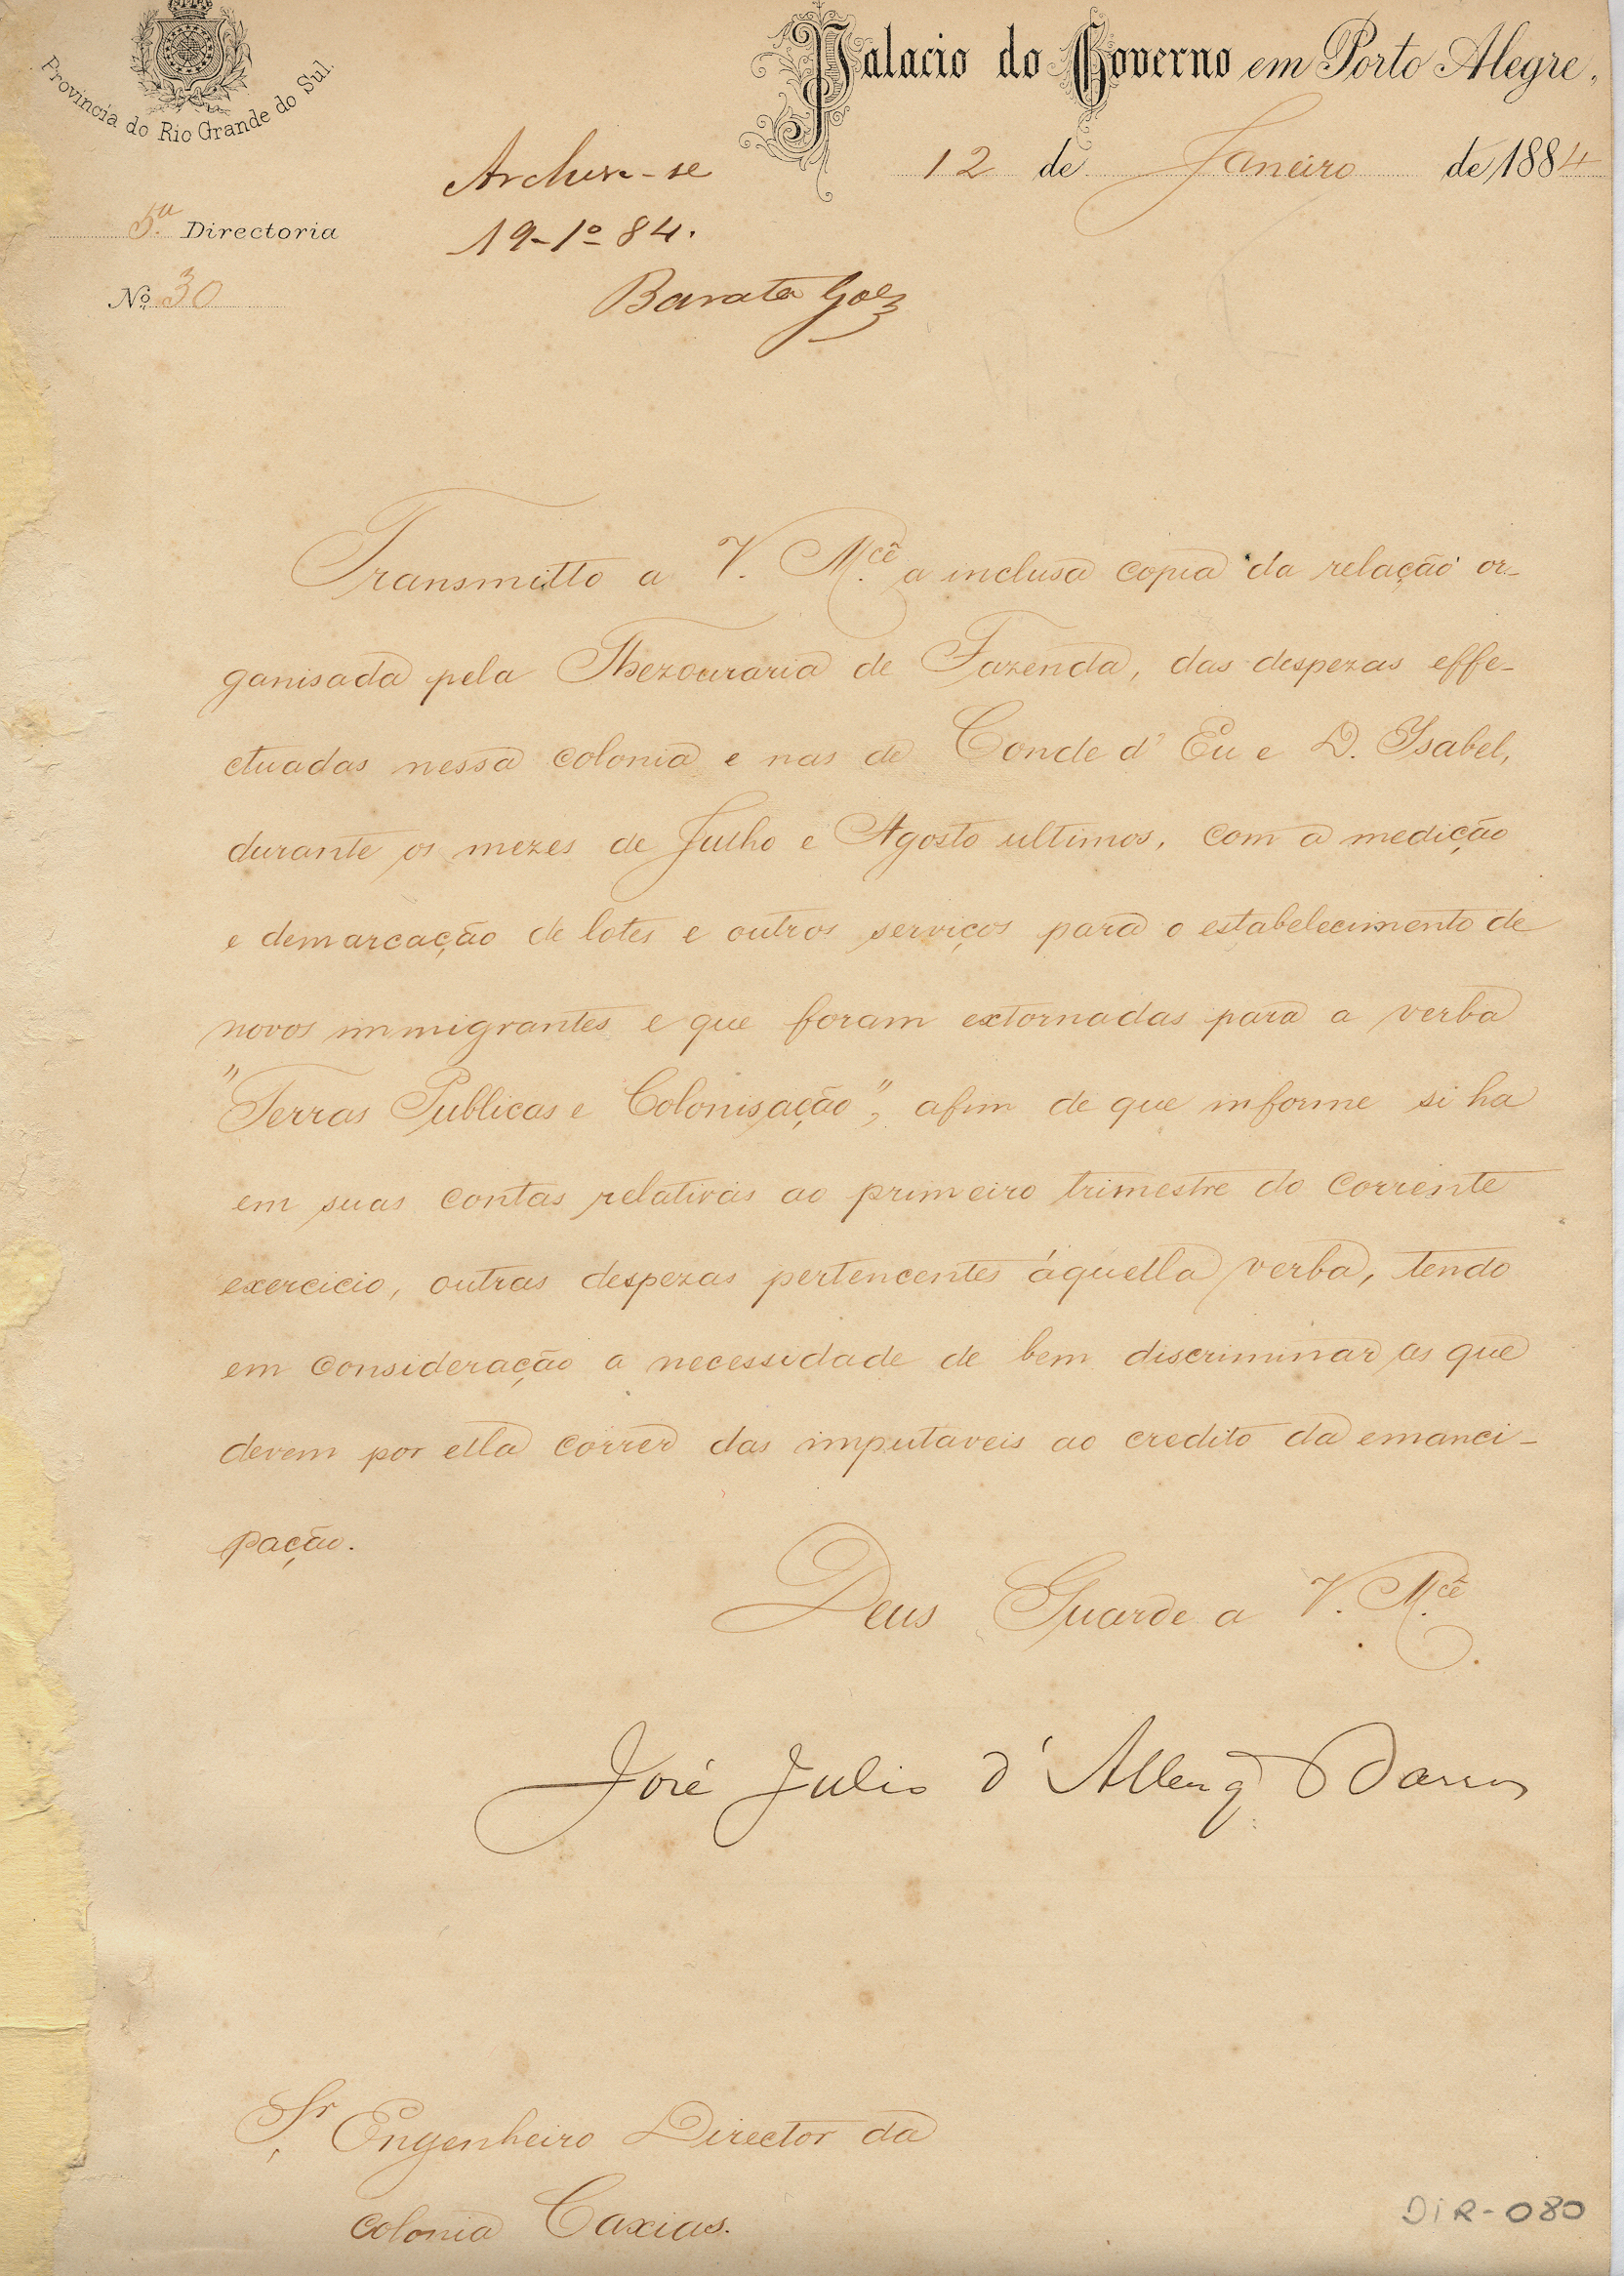 Provincia do Rio Grande do Sul.
Palacio do Governo em Porto Alegre,
12 de Janeiro de 1884
Archive-se
5.ª Directoria
19-1º-84.
Nº 30
Barata Góes
Transmitto a V. M.cê a inclusa copia da relação or-
ganisada pela Thezouraria de Fazenda, das despezas effe-
ctuadas nessa colonia e nas de Conde d'Eu e D. Isabel,
durante os mezes de Julho e Agosto ultimos, com a medição
e demarcação de lotes e outros serviços para o estabelecimento de
novos immigrantes e que foram extornadas para a verba
"Terras Publicas e Colonisação", afim de que informe si ha
em suas contas relativas ao primeiro trimestre do corrente
exercicio, outras despezas pertencentes áquella verba, tendo
em consideração a necessidade de bem discriminar as que
devem por ella correr das imputaveis ao credito da emanci-
pação.
Deus Guarde a V. M.cê
José Julio d'Albuq Barros
Sr Engenheiro Director da
colonia Caxias.
DIR-080